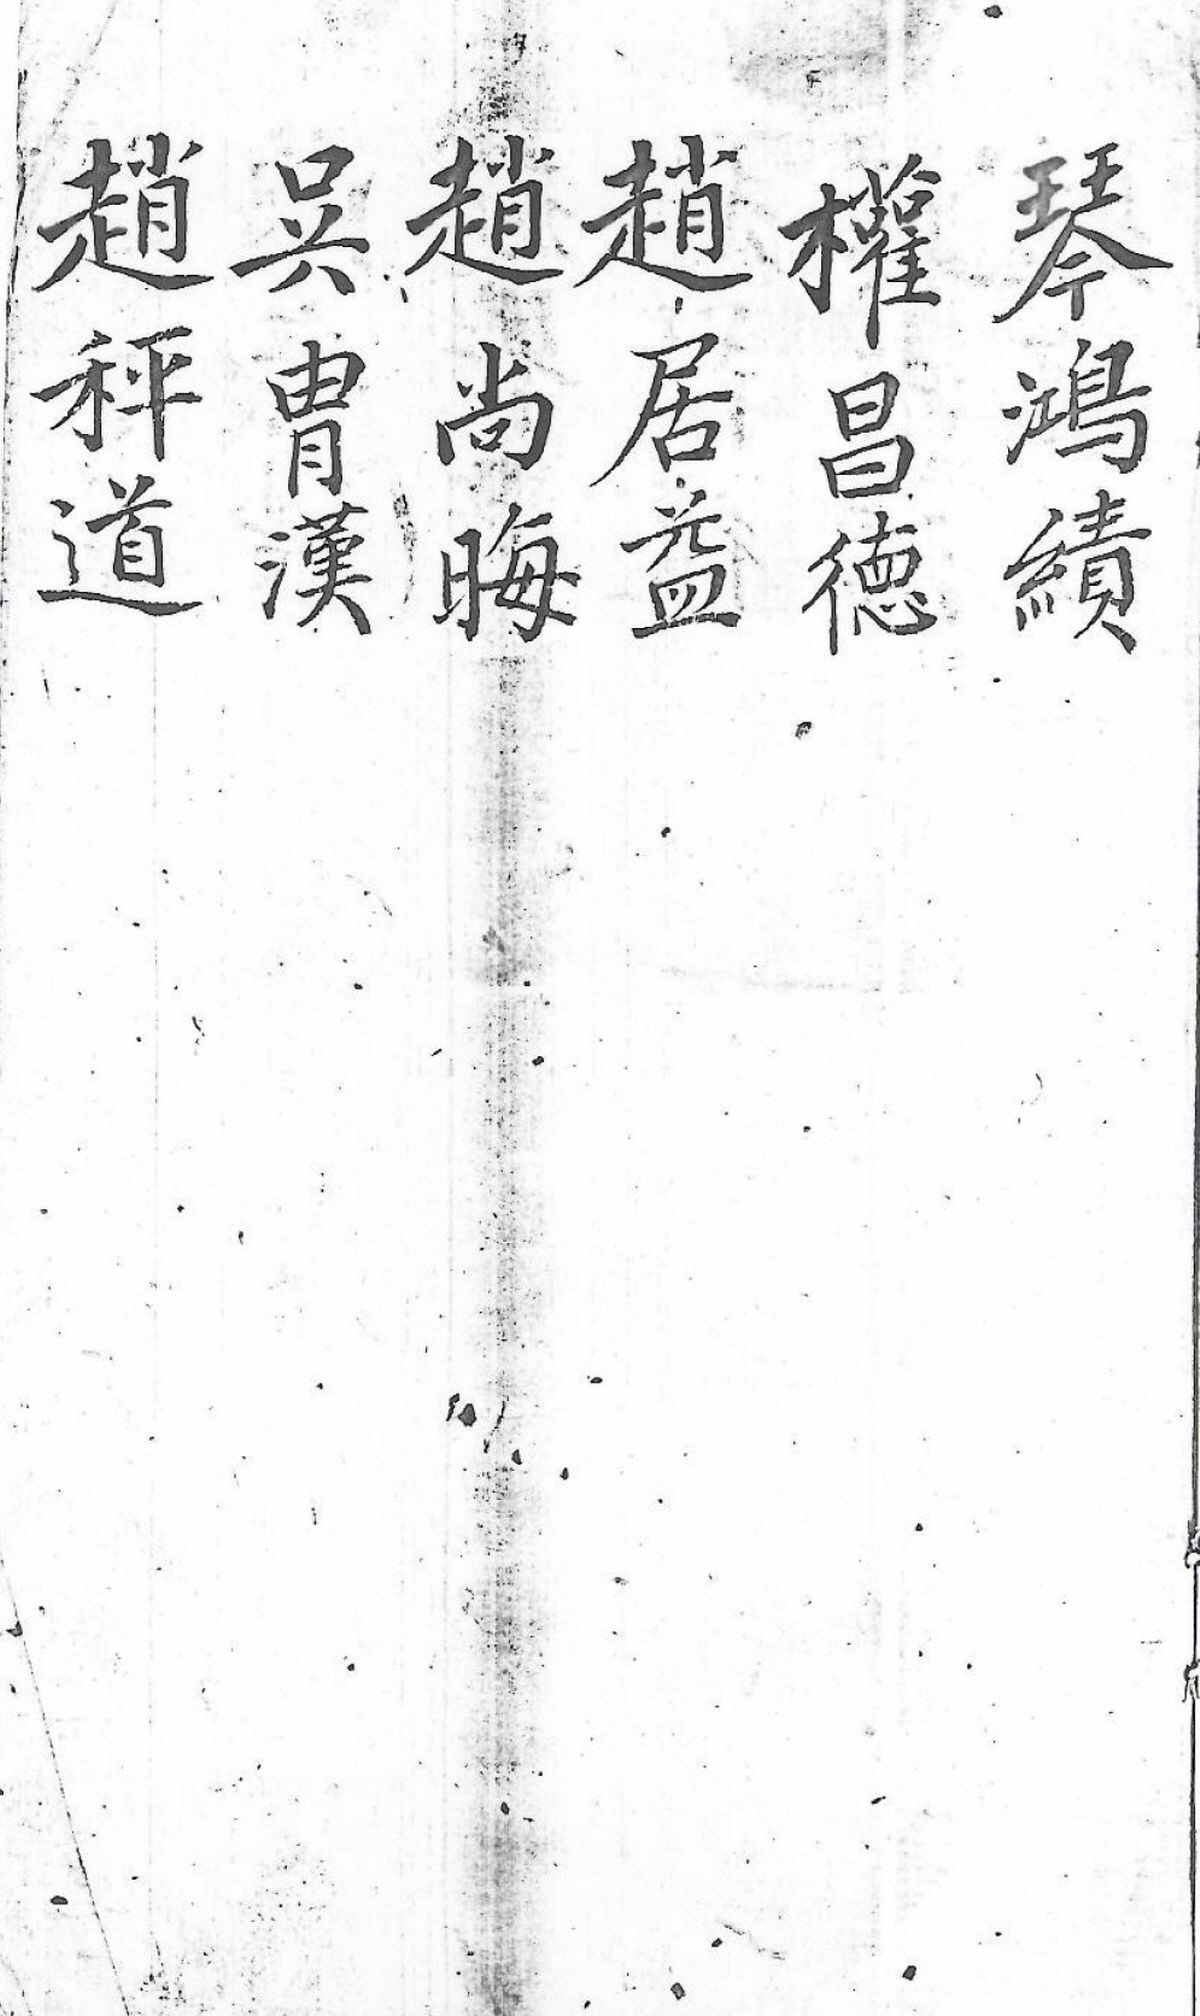 琴鴻績
權昌德
趙居益
趙尚晦
吳胄漢
趙秤道